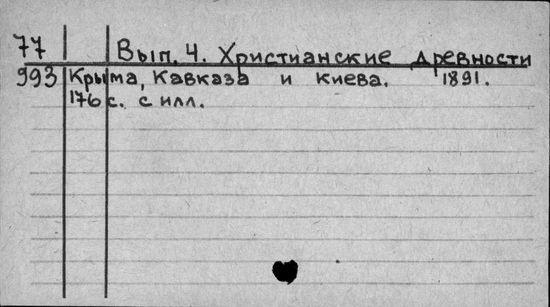 77 Вып. 4. Христианские древности
993 Крыма, Кавказа и Киева. 1891.
176 с. с илл.